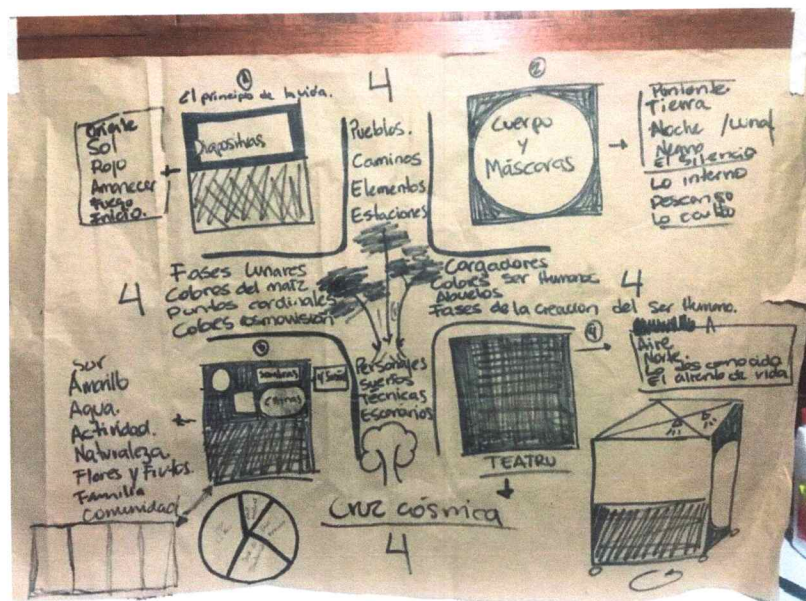 ①
El principio de la vida.
Diapositivas
Oriente
Sol
Rojo
Amanecer
Fuego
Inicio.
4
Pueblos.
Caminos
Elementos
Estaciones
②
Cuerpo
y
Máscaras
Poniente
Tierra
Noche / Luna
Negro
El silencio
Lo interno
Descanso
Lo oculto
4
Fases Lunares
Colores del maíz
Puntos cardinales
Colores cosmovisión
Cargadores
Colores ser Humano.
Abuelos
Fases de la creación del ser Humano.
4
Sur
Amarillo
Agua.
Actividad.
Naturaleza.
Flores y Frutos.
Familia
Comunidad
sombras
Personajes
Sueños
Técnicas
Escenarios
④
TEATRO
Aire
Norte.
Lo desconocido
El aliento de vida
Cruz cósmica
4